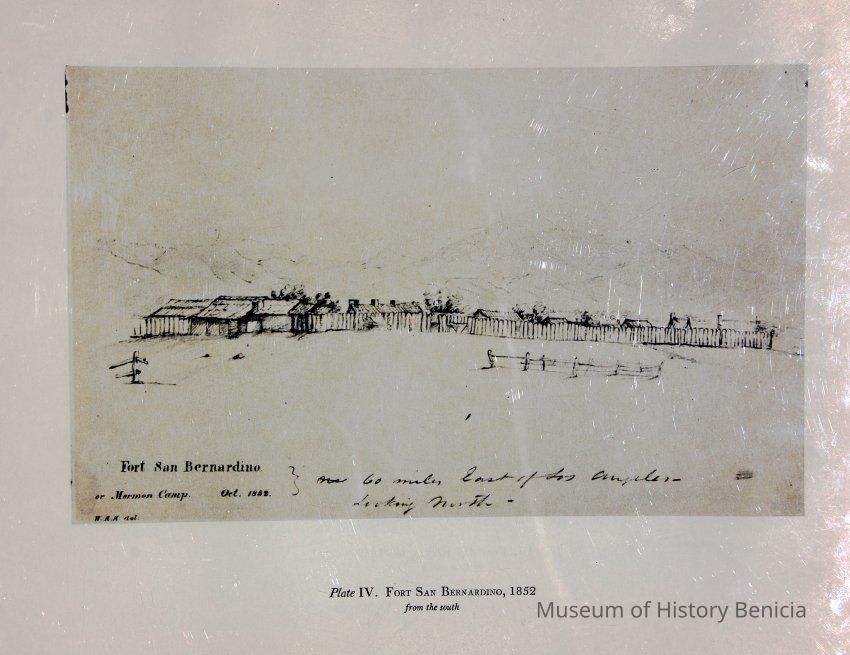 Fort San Bernardino
or Mormon Camp. Oct. 1852.
60 miles East of Los Angeles
Looking North -
W.R.H. del.
Plate IV. FORT SAN BERNARDINO, 1852
from the south
Museum of History Benicia